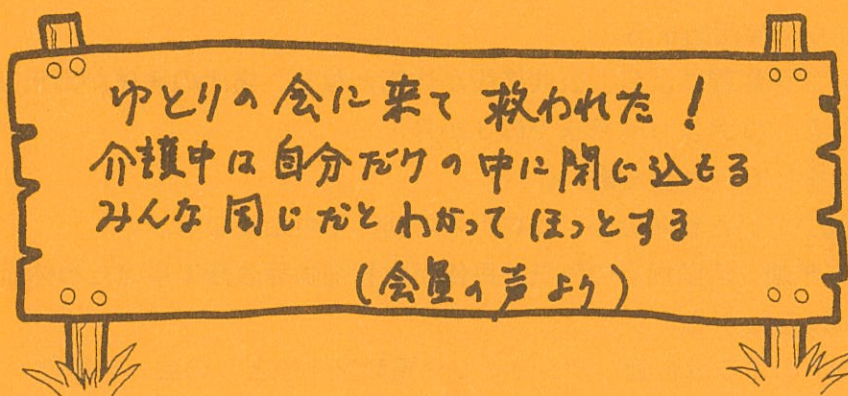 ゆとりの会に来て 救われた!
介護中は自分だけの中に閉じ込もる
みんな同じだとわかってほっとする
(会員の声より)